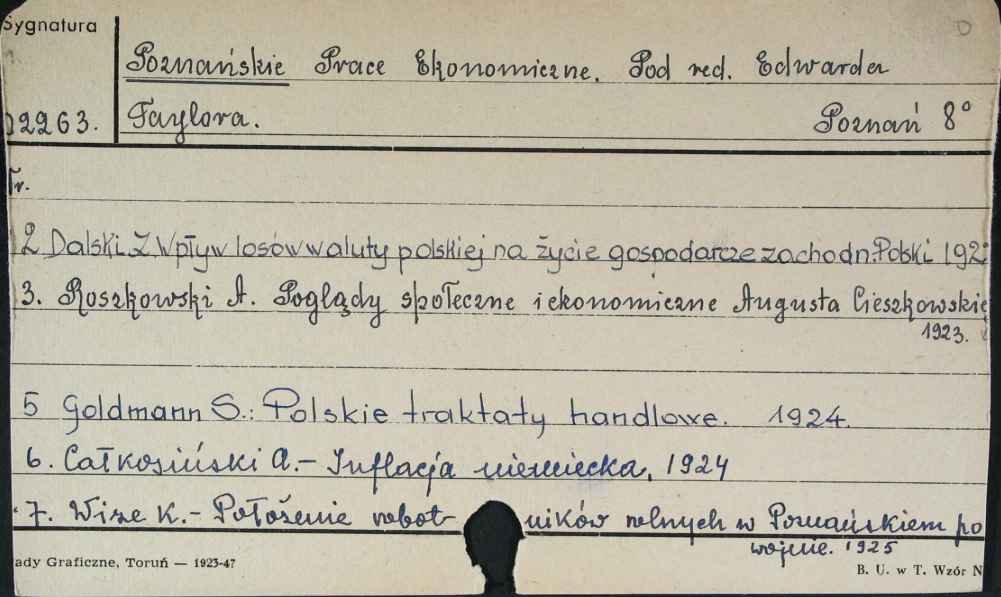 Sygnatura
Poznańskie Prace Ekonomiczne. Pod red. Edwarda
02263. Taylora. Poznań 8°
Tr.
2 Dalski Z Wpływ losów waluty polskiej na życie gospodarcze zachodn. Polski 192
3. Roszkowski A. Poglądy społeczne i ekonomiczne Augusta Cieszkowskie
1923.
5 Goldmann S.: Polskie traktaty handlowe. 1924.
6. Całkosiński A. - Inflacja niemiecka, 1924
7. Wize K. - Położenie robotników rolnych w Poznańskiem po
wojnie. 1925
ady Graficzne, Toruń — 1923-47
B. U. w T. Wzór N